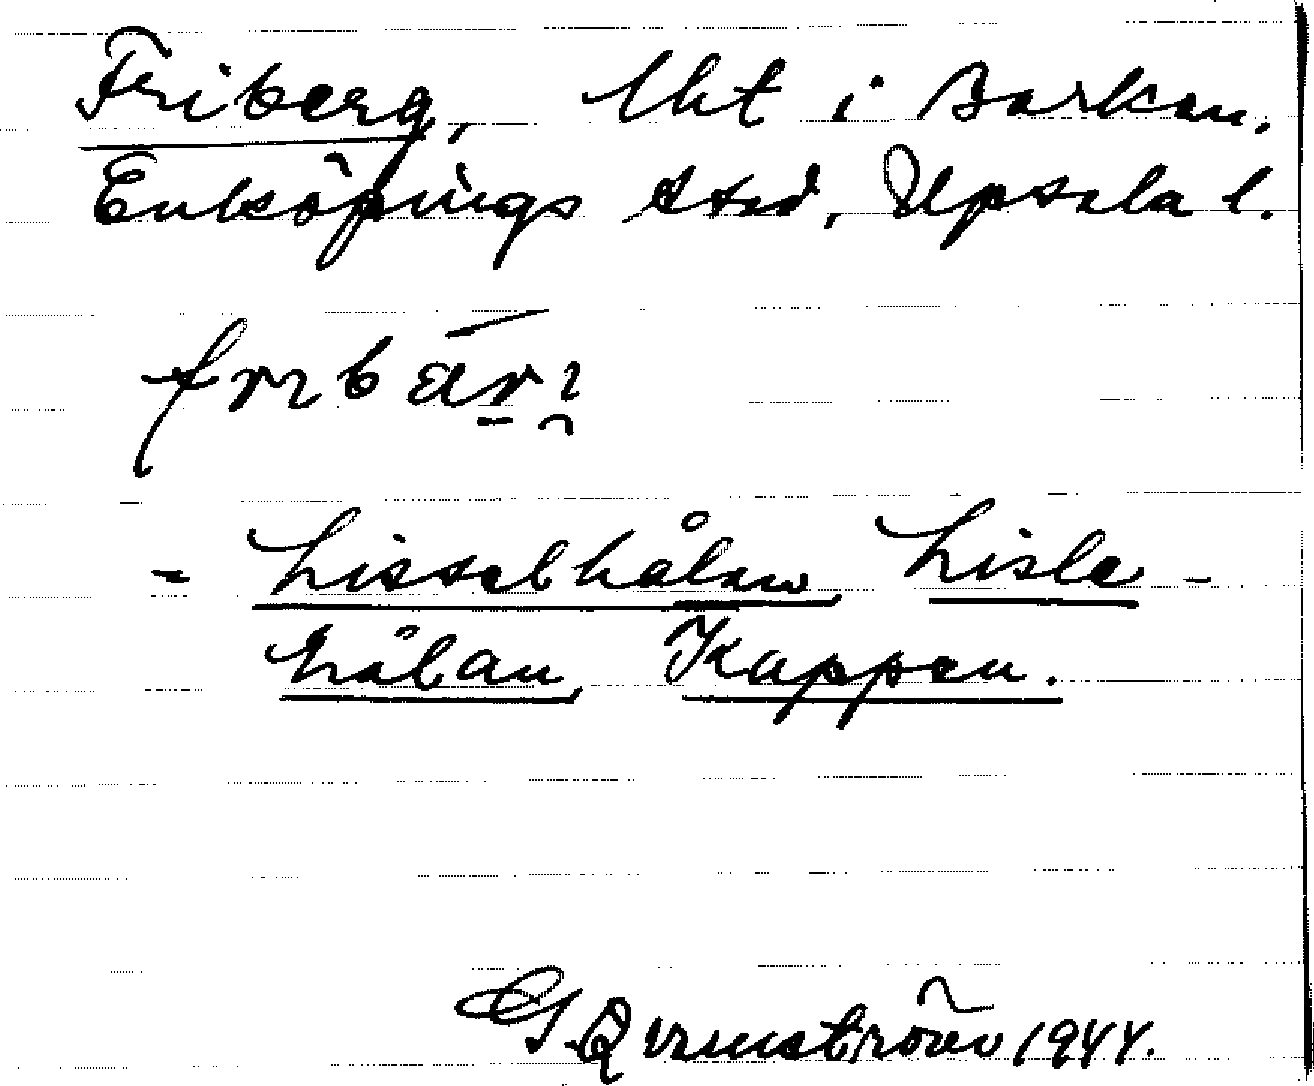 Friberg, lht i Barken.
Enköpings stad, Upsala l.
frıbär̄ı
= Lisselhålan, Lisle-
hålan, Kappen.
G. Qvarnström 1944.